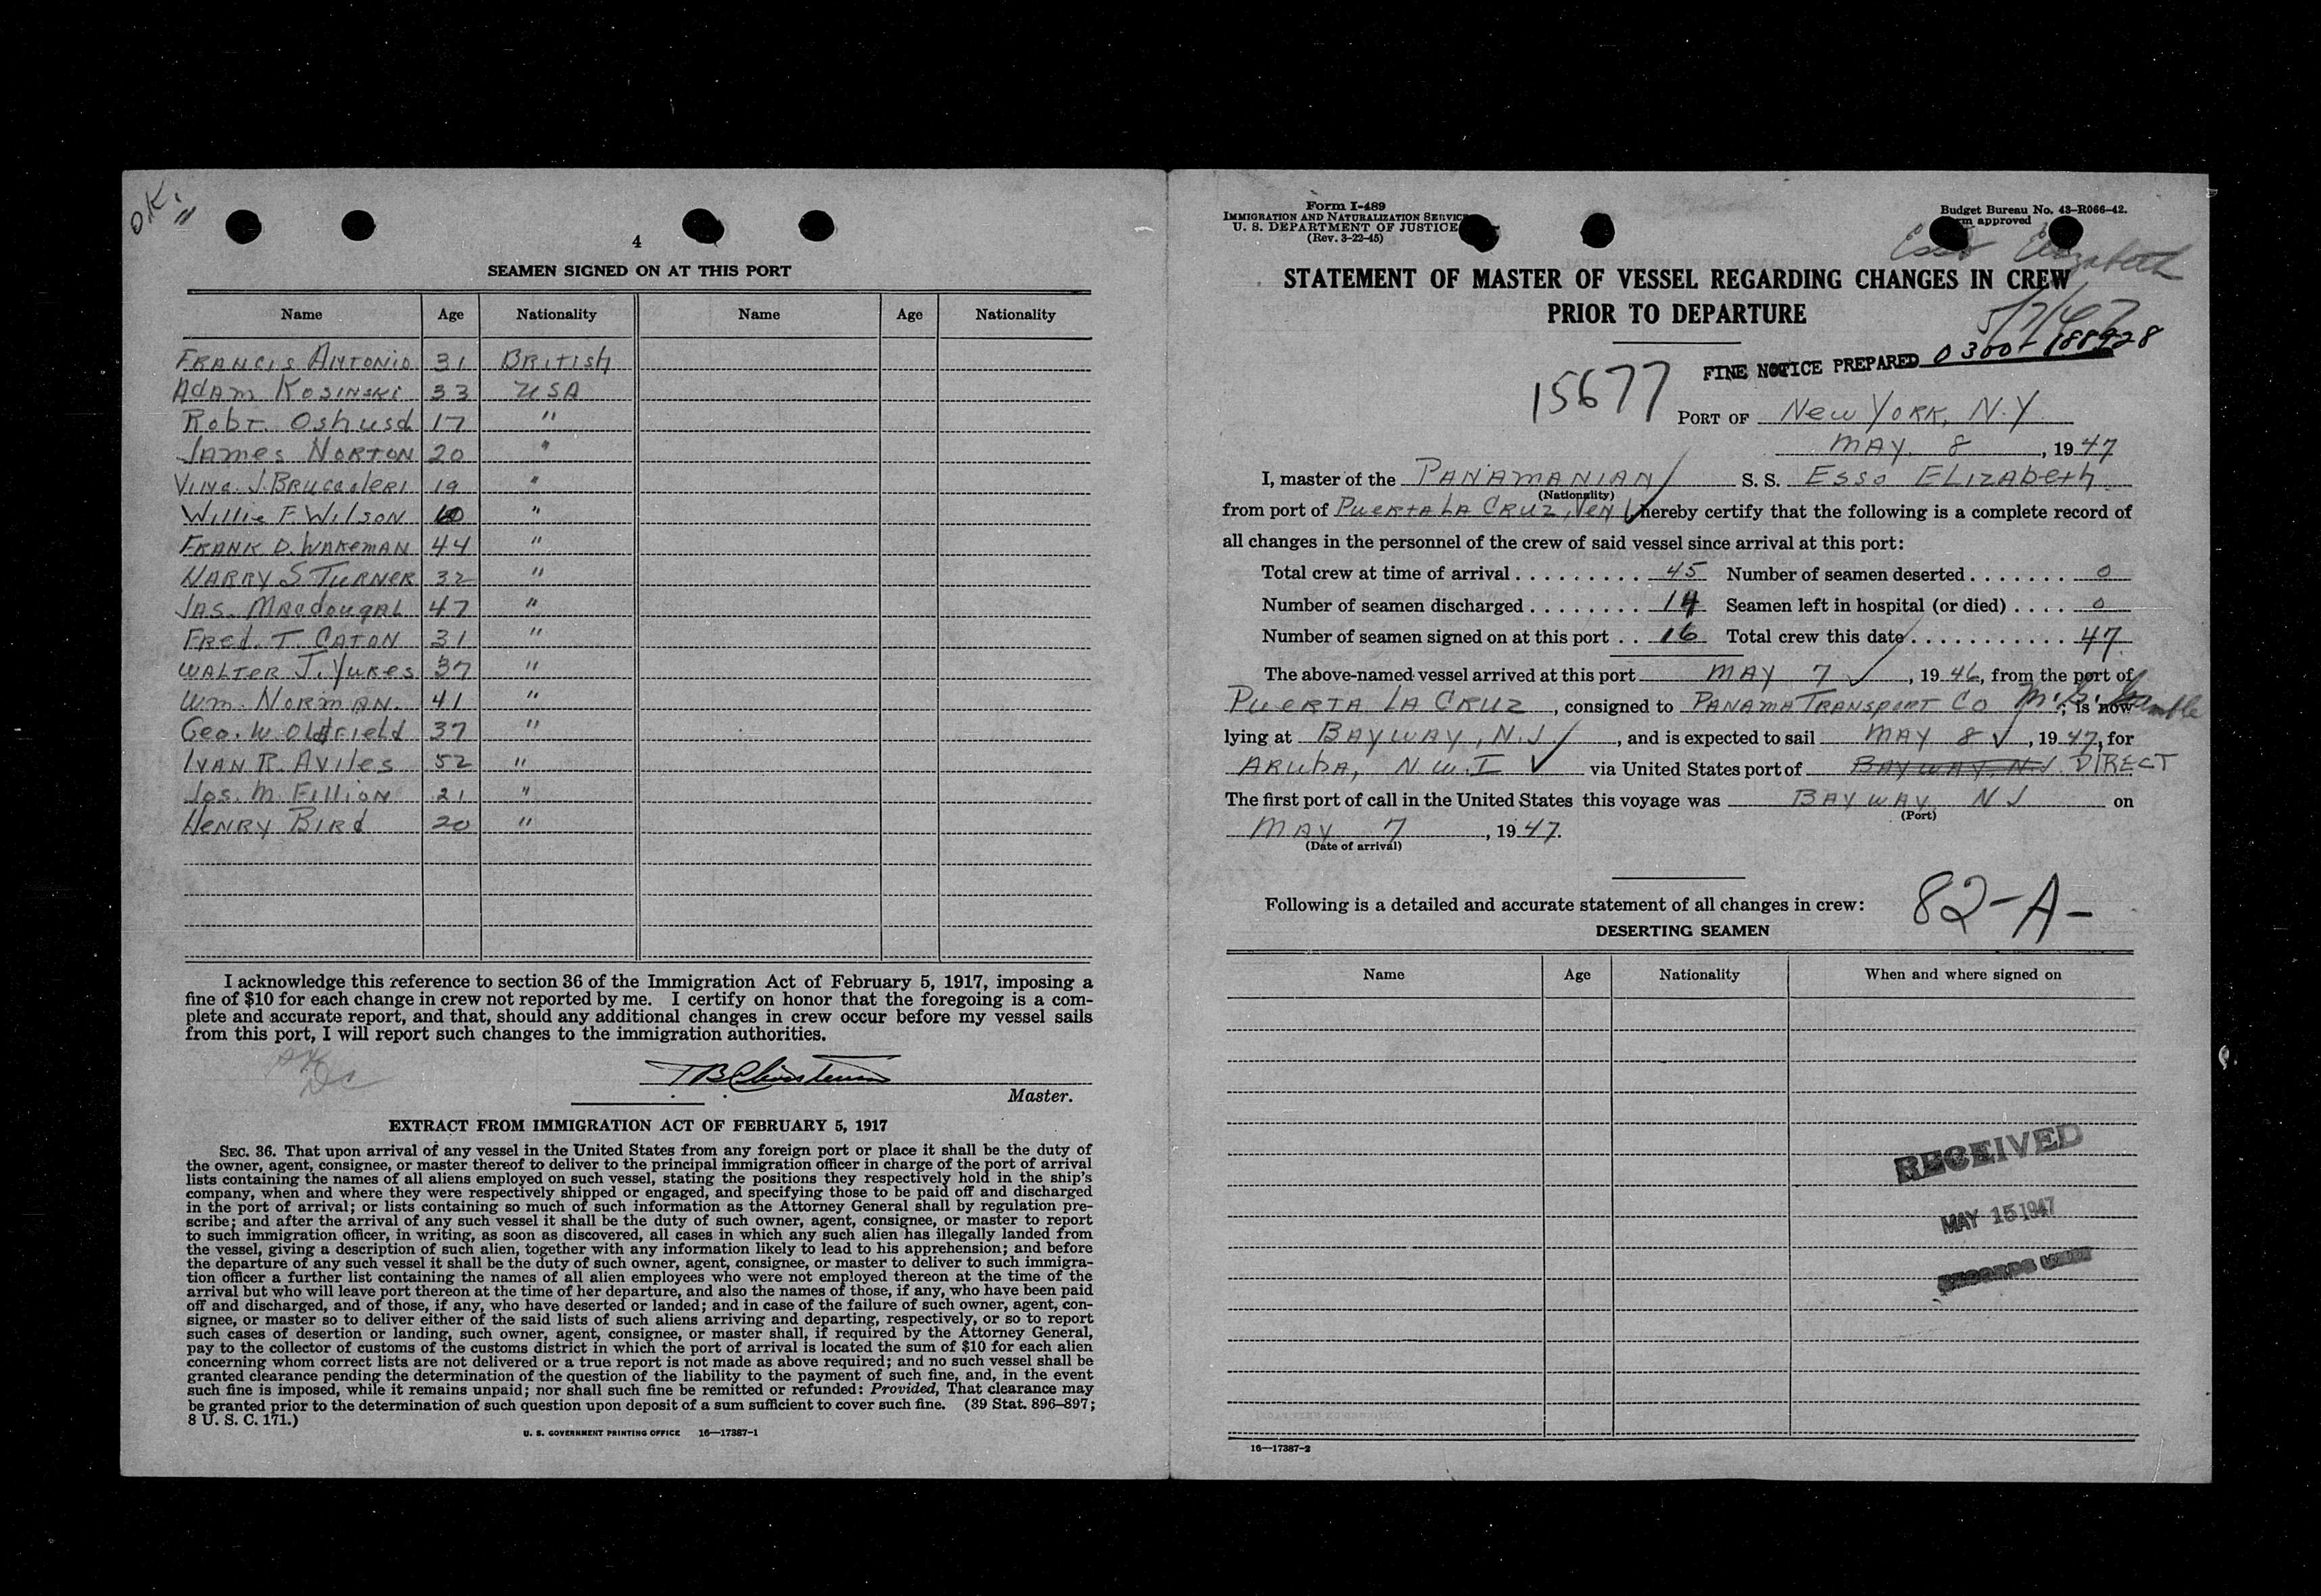 OK.
4
SEAMEN SIGNED ON AT THIS PORT
Name Age Nationality Name Age Nationality
FRANCIS ANTONIO 31 BRITISH
ADAM KOSINSKI 33 USA
ROBT. 17 "
JAMES NORTON 20 "
J. BRUCCOLERI 19 "
WILLIE F. WILSON "
FRANK D. WAKEMAN 44 "
HARRY S. TURNER 32 "
JAS. MACDOUGAL 47 "
FRED. T. CATON 31 "
WALTER J. YUKES 37 "
WM. NORMAN. 41 "
GEO. W. OLDFIELD 37 "
IVAN R. AVILES 52 "
JOS. M. FILLION 21 "
HENRY BIRD 20 "
I acknowledge this reference to section 36 of the Immigration Act of February 5, 1917, imposing a
fine of $10 for each change in crew not reported by me. I certify on honor that the foregoing is a com-
plete and accurate report, and that, should any additional changes in crew occur before my vessel sails
from this port, I will report such changes to the immigration authorities.
Master.
EXTRACT FROM IMMIGRATION ACT OF FEBRUARY 5, 1917
SEC. 36. That upon arrival of any vessel in the United States from any foreign port or place it shall be the duty of
the owner, agent, consignee, or master thereof to deliver to the principal immigration officer in charge of the port of arrival
lists containing the names of all aliens employed on such vessel, stating the positions they respectively hold in the ship's
company, when and where they were respectively shipped or engaged, and specifying those to be paid off and discharged
in the port of arrival; or lists containing so much of such information as the Attorney General shall by regulation pre-
scribe; and after the arrival of any such vessel it shall be the duty of such owner, agent, consignee, or master to report
to such immigration officer, in writing, as soon as discovered, all cases in which any such alien has illegally landed from
the vessel, giving a description of such alien, together with any information likely to lead to his apprehension; and before
the departure of any such vessel it shall be the duty of such owner, agent, consignee, or master to deliver to such immigra-
tion officer a further list containing the names of all alien employees who were not employed thereon at the time of the
arrival but who will leave port thereon at the time of her departure, and also the names of those, if any, who have been paid
off and discharged, and of those, if any, who have deserted or landed; and in case of the failure of such owner, agent, con-
signee, or master so to deliver either of the said lists of such aliens arriving and departing, respectively, or so to report
such cases of desertion or landing, such owner, agent, consignee, or master shall, if required by the Attorney General,
pay to the collector of customs of the customs district in which the port of arrival is located the sum of $10 for each alien
concerning whom correct lists are not delivered or a true report is not made as above required; and no such vessel shall be
granted clearance pending the determination of the question of the liability to the payment of such fine, and, in the event
such fine is imposed, while it remains unpaid; nor shall such fine be remitted or refunded: Provided, That clearance may
be granted prior to the determination of such question upon deposit of a sum sufficient to cover such fine. (39 Stat. 896–897;
8 U. S. C. 171.)
U. S. GOVERNMENT PRINTING OFFICE 16—17387-1
Form I-489
IMMIGRATION AND NATURALIZATION SERVICE
U. S. DEPARTMENT OF JUSTICE
(Rev. 3-22-45)
Budget Bureau No. 43-R066-42.
approved
Esso Elizabeth
STATEMENT OF MASTER OF VESSEL REGARDING CHANGES IN CREW
PRIOR TO DEPARTURE
5/7/47
FINE NOTICE PREPARED 0300-188928
15677
PORT OF NEW YORK, N.Y.
MAY 8, 1947
I, master of the PANAMANIAN S. S. ESSO ELIZABETH
(Nationality)
from port of PUERTA LA CRUZ, VEN hereby certify that the following is a complete record of
all changes in the personnel of the crew of said vessel since arrival at this port:
Total crew at time of arrival 45 Number of seamen deserted 0
Number of seamen discharged 14 Seamen left in hospital (or died) 0
Number of seamen signed on at this port 16 Total crew this date 47
The above-named vessel arrived at this port MAY 7, 1946, from the port of
PUERTA LA CRUZ, consigned to PANAMA TRANSPORT CO; is now
lying at BAYWAY, N.J., and is expected to sail MAY 8, 1947, for
ARUBA, N.W.I via United States port of BAYWAY, N.J. DIRECT
The first port of call in the United States this voyage was BAYWAY NJ on
(Port)
MAY 7, 1947.
(Date of arrival)
Following is a detailed and accurate statement of all changes in crew:
82-A-
DESERTING SEAMEN
Name Age Nationality When and where signed on
RECEIVED
MAY 15 1947
RECORDS
16—17387-2